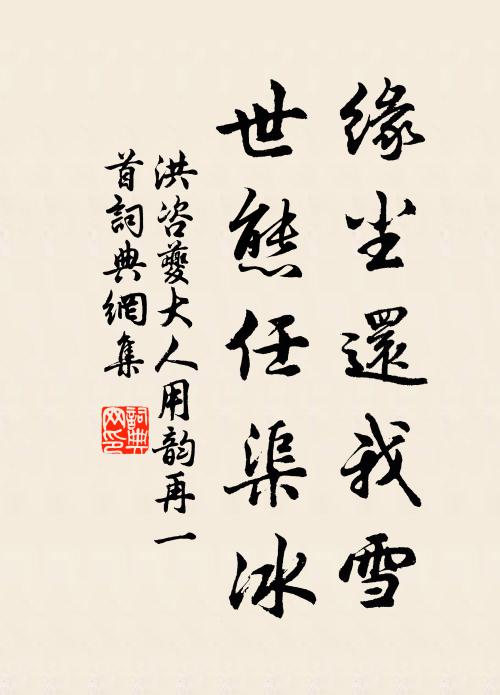 缘尘還我雪
世態任渠冰
洪咨夔大人用韵再一
首詞典網集
詞典
网印